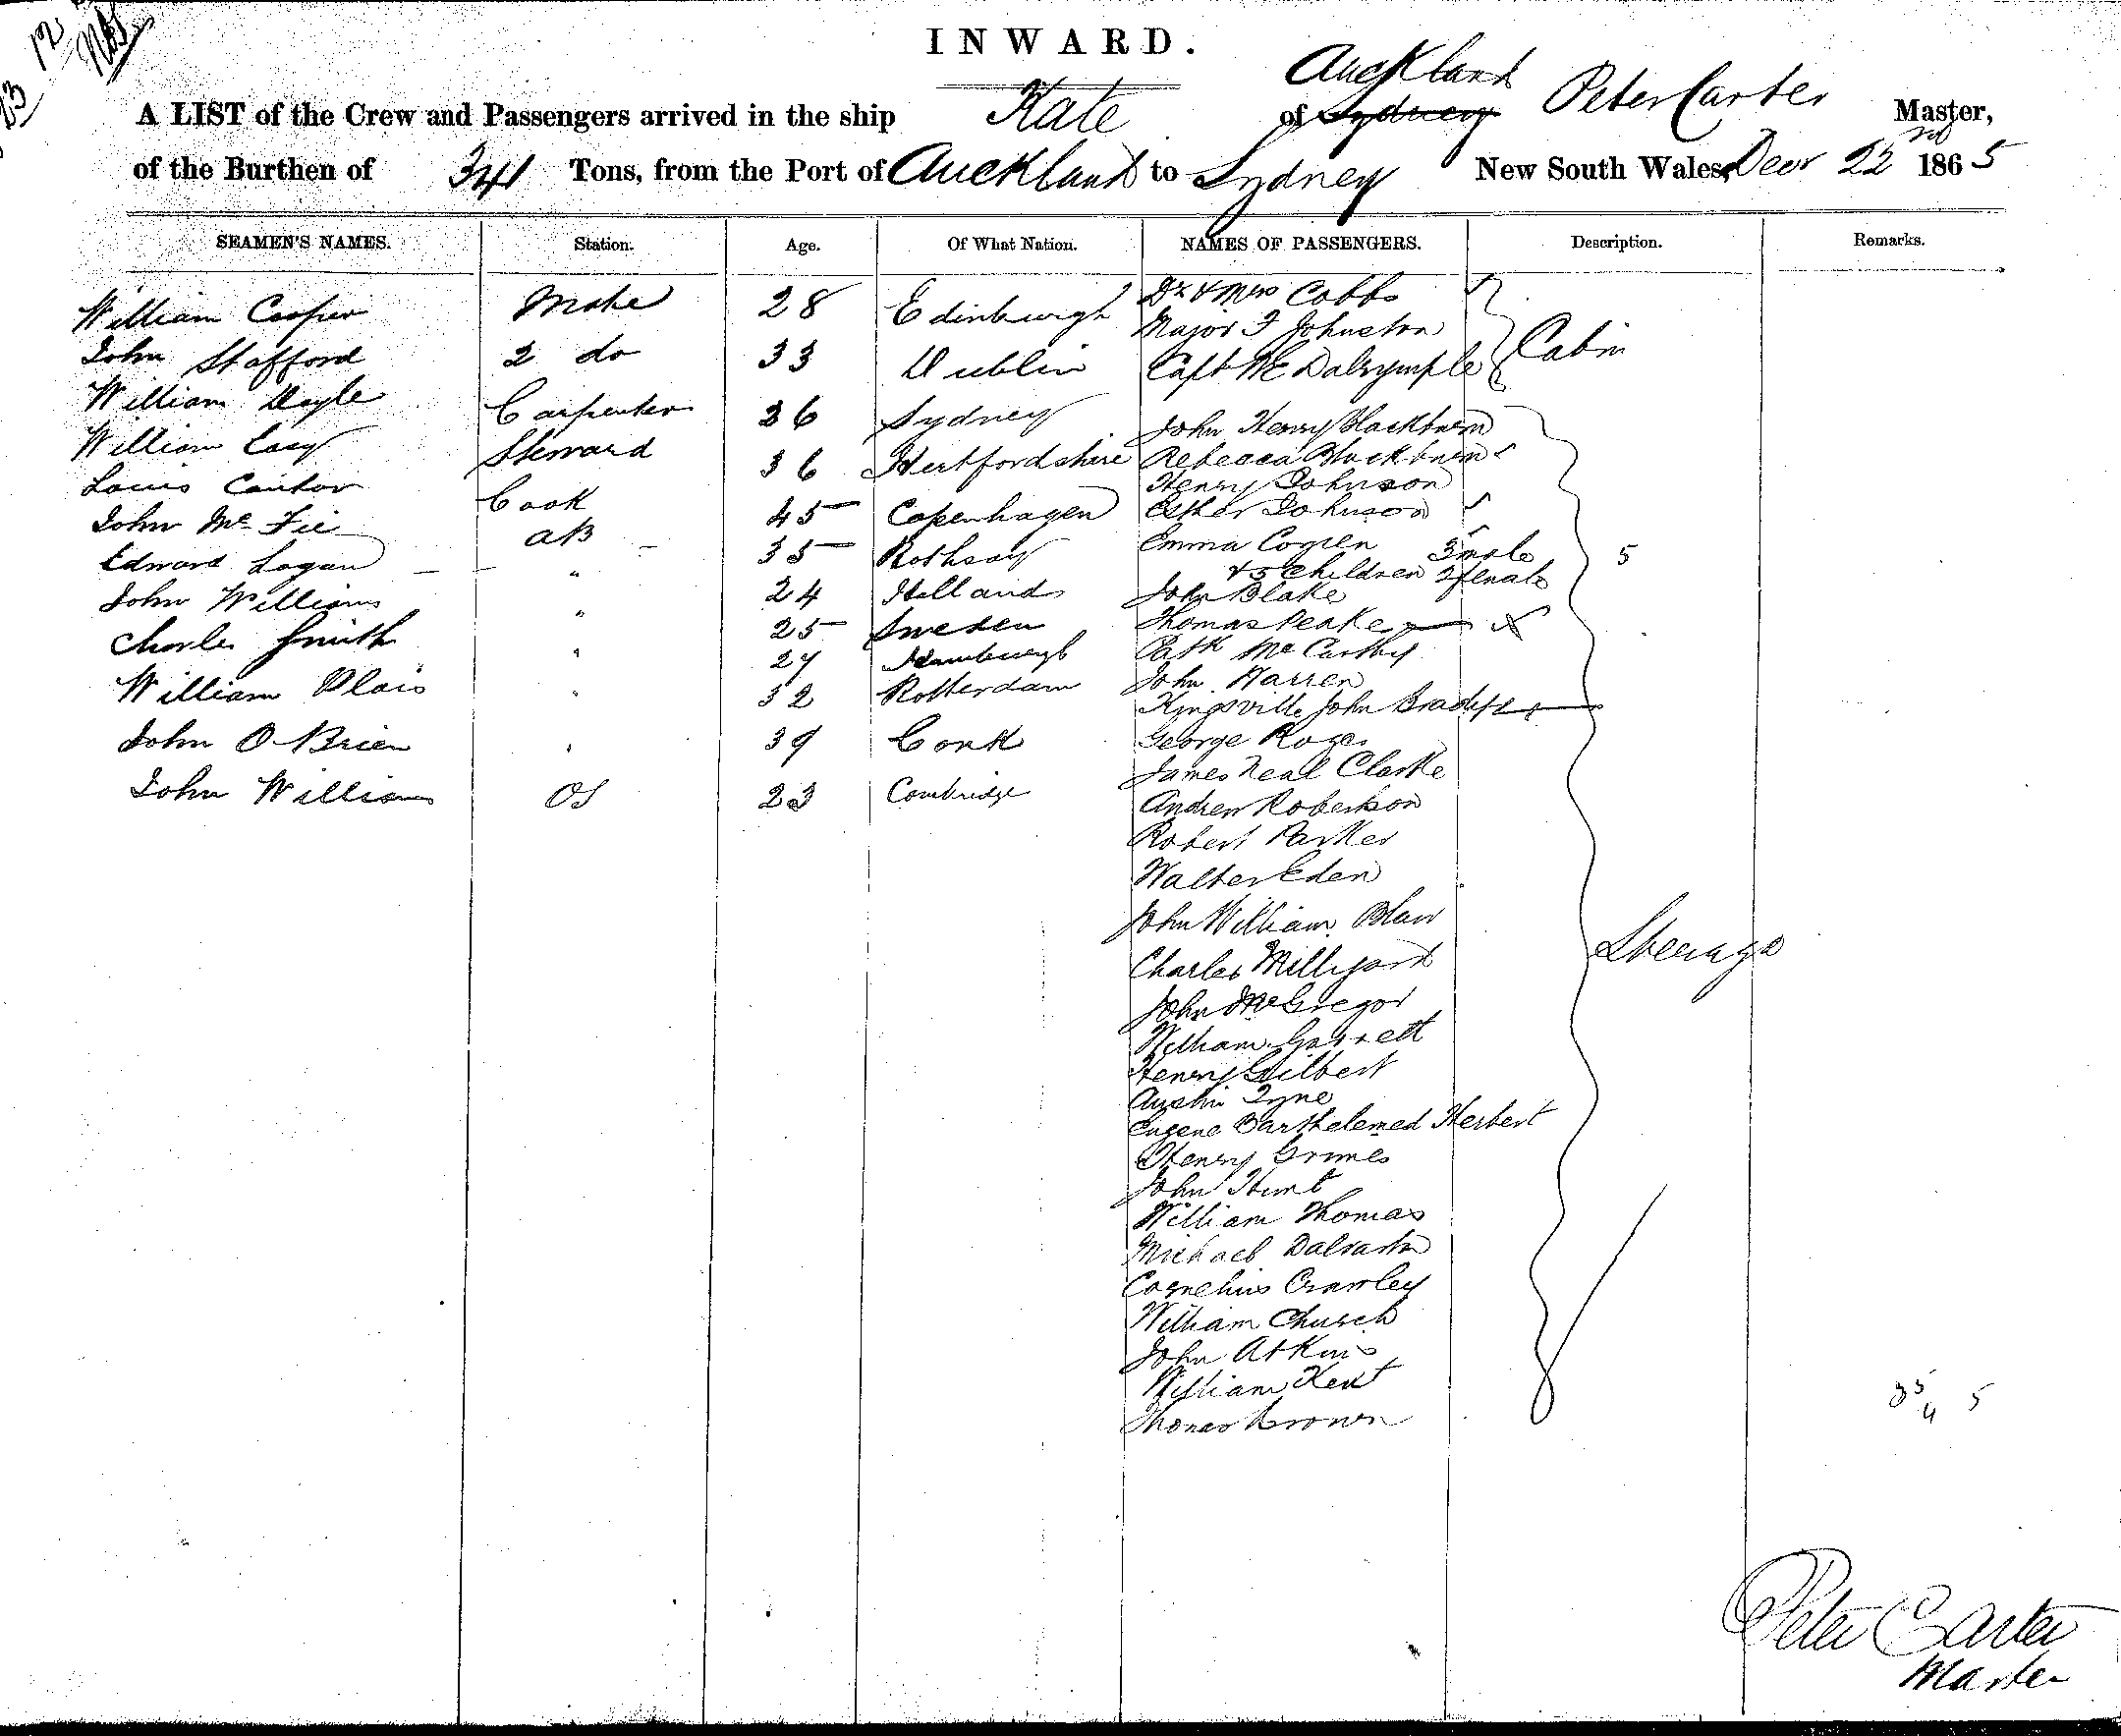 INWARD.
Auckland
A LIST of the Crew and Passengers arrived in the ship Kate of Sydney Peter Carter Master,
of the Burthen of 341 Tons, from the Port of Auckland to Sydney New South Wales, Decr 22nd 1865
SEAMEN'S NAMES. Station. Age. Of What Nation. NAMES OF PASSENGERS. Description. Remarks.
William Cooper Mate 28 Edinburgh
John Stafford 2 do 33 Dublin
William Doyle Carpenter 36 Sydney
William Casy Steward 36 Hertfordshire
Louis Cantor Cook 45 Copenhagen
John McFie AB 35 Rothsay
Edward Logan " 24 Holland
John Williams " 25 Sweden
Charles Smith " 27 Hamburgh
William " 32 Rotterdam
John O'Brien " 39 Cork
John Williams OS 23 Cambridge
Dr & Mrs Cobbs
Major F Johnston
Capt Dalrymple
Cabin
John Henry Blackburn
Rebecca Blackburn
Henry Johnson
Esther Johnson
Emma 3 male
& 5 Children 2 female
5
John Blake
Thomas Peake X
Patk McCarthy
John Warren
Kingsville John
George Roger
James Neal Clarke
Andrew Robertson
Robert Parker
Walter Eden
John William Blaw
Charles Millgard
John McGregor
William Garrett
Henry Gilbert
Austin Tyne
Eugene Barthelemed Herbert
Henry Grimes
John Hunt
William Thomas
Michael
Cornelius Crawley
William Church
John Atkins
William Kent
Thomas Brown
Steerage
35 5
4
Peter Carter
Master